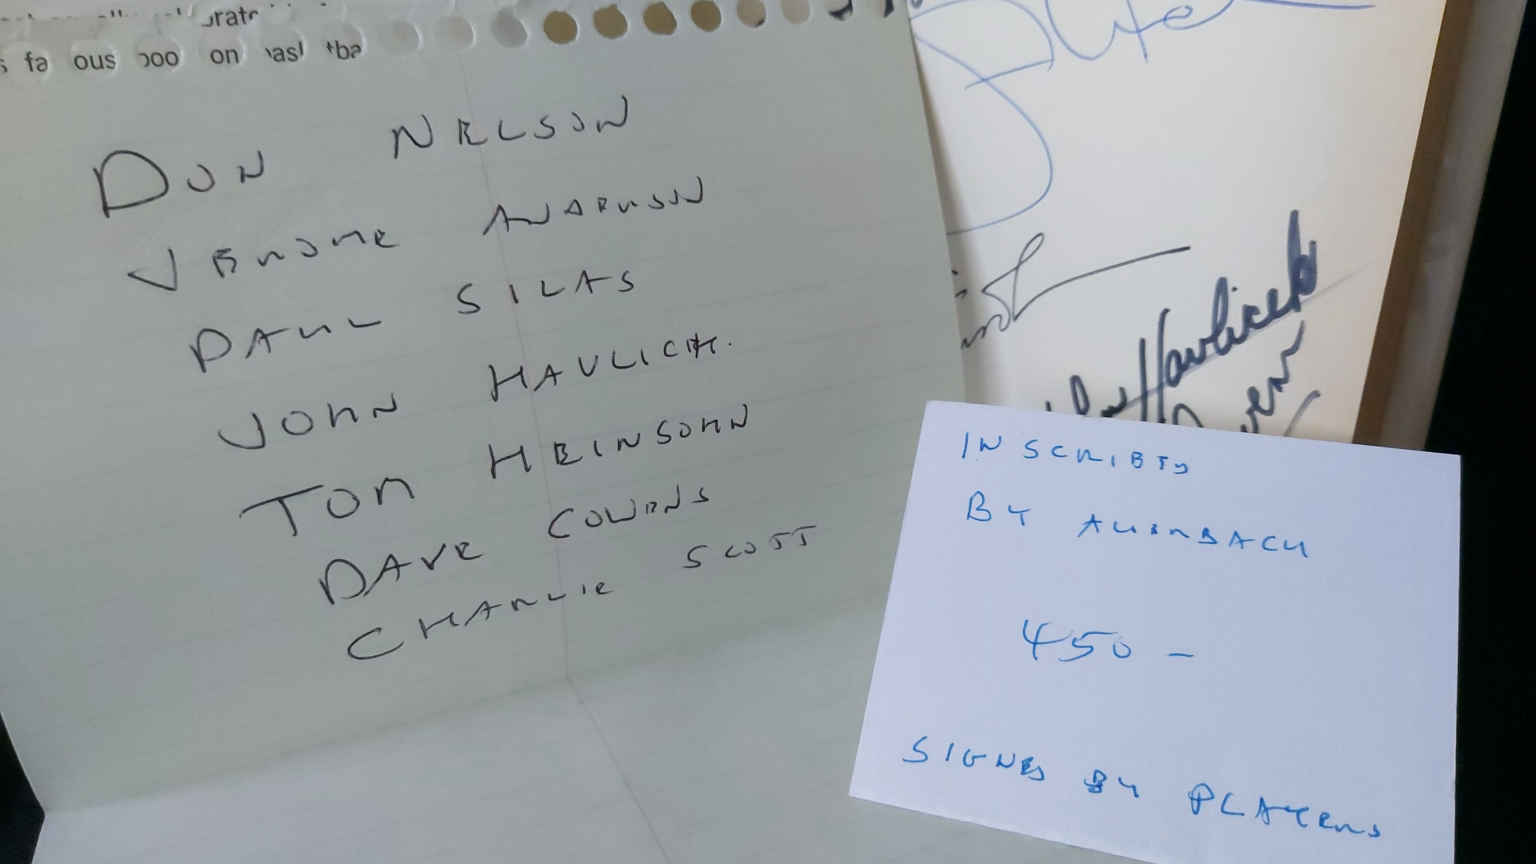 fa ous boo on bask tba
DON NELSON
JEROME ANDERSON
PAUL SILAS
JOHN HAVLICH.
TOM HEINSOHN
DAVE COWENS
CHARLIE SCOTT
Havlicek
INSCRIBED
BY AUERBACH
450 -
SIGNED BY PLAYERS